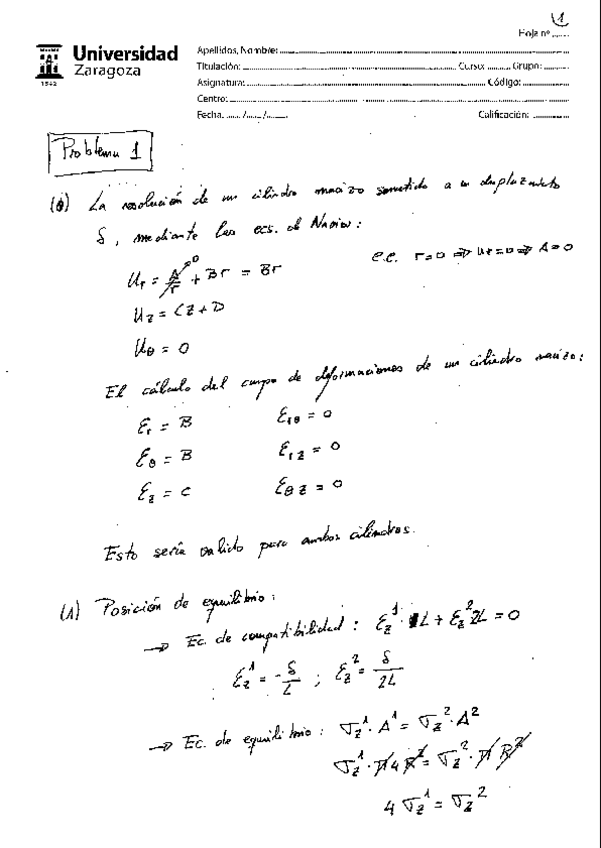 1
Hoja nº ......
Universidad
Zaragoza
1542
Apellidos, Nombre: ......
Titulación: ...... Curso: ...... Grupo: ......
Asignatura: ...... Código: ......
Centro: ......
Fecha: ....../....../...... Calificación: ......
Problema 1
(0) La resolución de un cilindro macizo sometido a un desplazamiento
δ, mediante las ecs. de Navier:
U_r = A/r + Br = Br
c.c. r=0 ⇒ U_r=0 ⇒ A=0
U_z = Cz + D
U_θ = 0
El cálculo del campo de deformaciones de un cilindro macizo:
ε_r = B ε_rθ = 0
ε_θ = B ε_rz = 0
ε_z = C ε_θz = 0
Esto sería valido para ambos cilindros.
(1) Posición de equilibrio:
→ Ec. de compatibilidad: ε_z^1 · L + ε_z^2 2L = 0
ε_z^1 = -δ/L ; ε_z^2 = δ/2L
→ Ec. de equilibrio: σ_z^1 · A^1 = σ_z^2 · A^2
σ_z^1 · π 4 R^2 = σ_z^2 · π R^2
4 σ_z^1 = σ_z^2